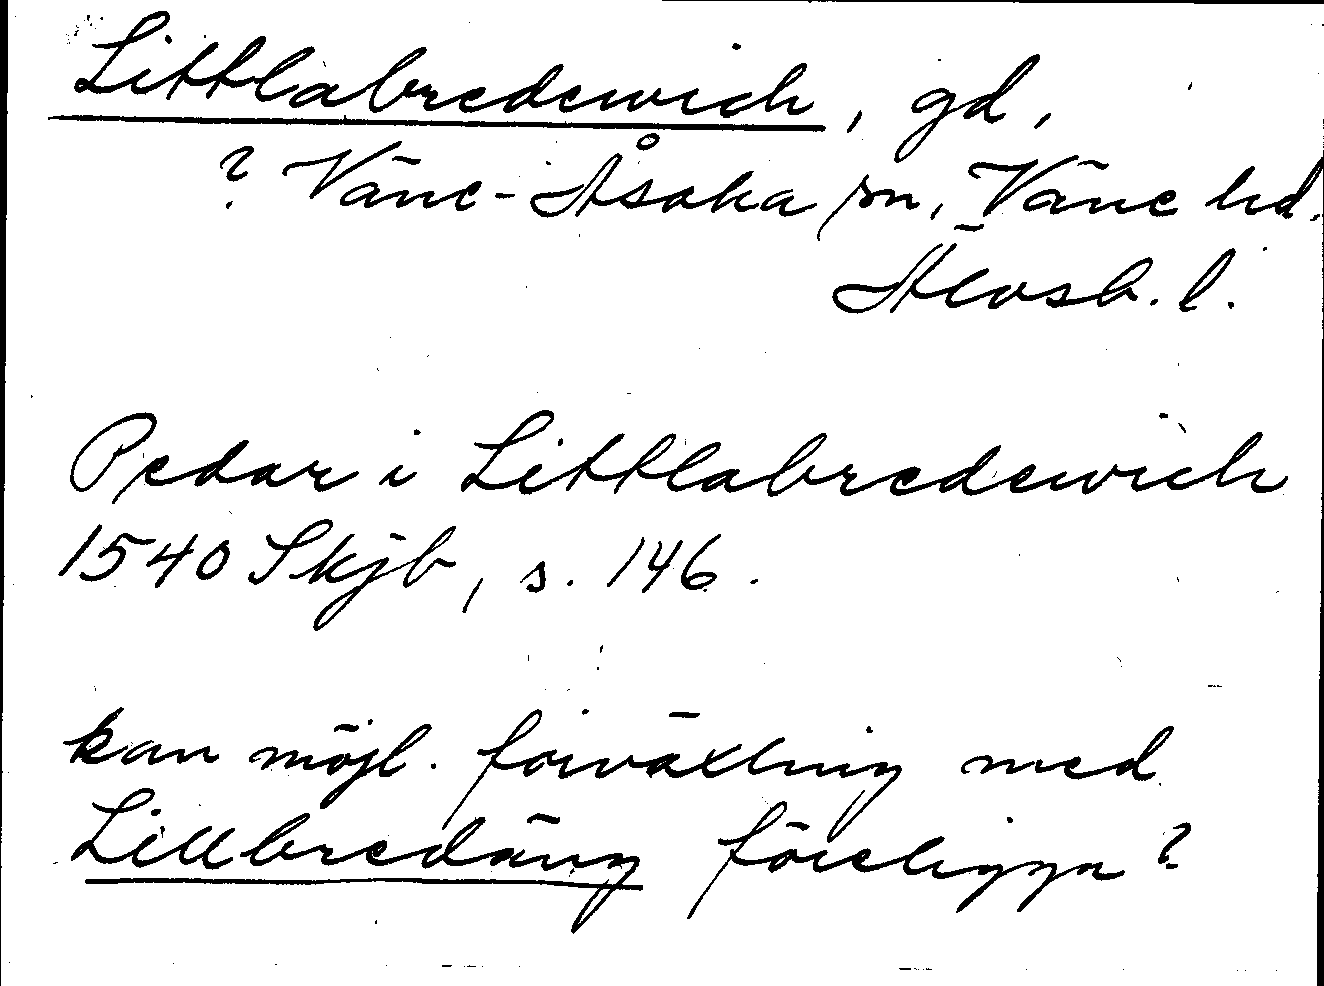 Littlabredewich, gd,
? Väne-Åsaka sn, Väne hd.
Älvsb. l.
Pedar i Littlabredewich
1540 Skjb, s. 146.
kan möjl. förväxling med
Lillbredäng föreligga?